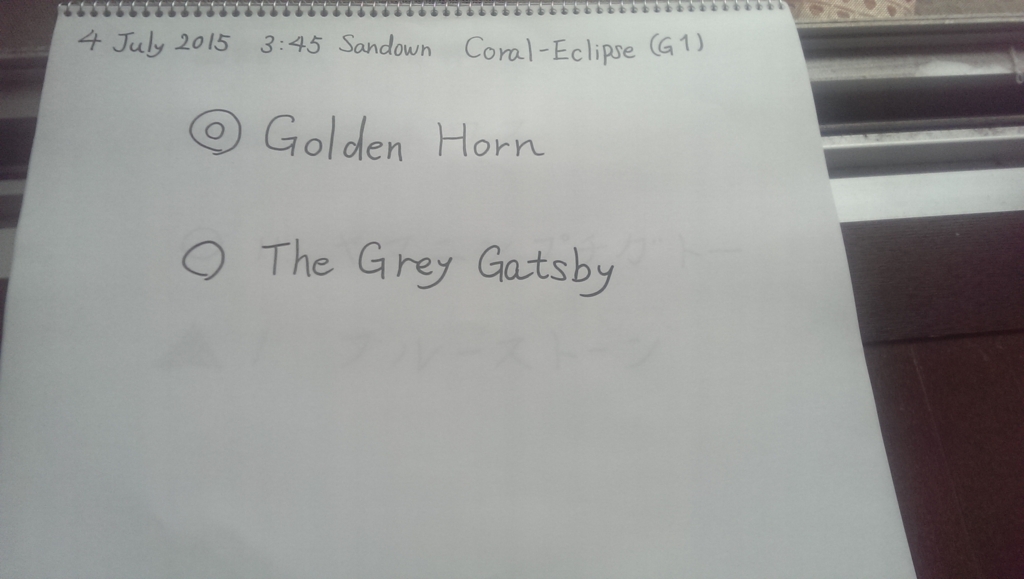 4 July 2015 3:45 Sandown Coral-Eclipse (G1)
◎ Golden Horn
○ The Grey Gatsby